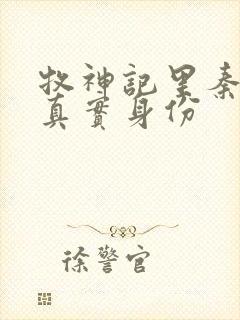 牧神記里秦
真實身份
徐警官